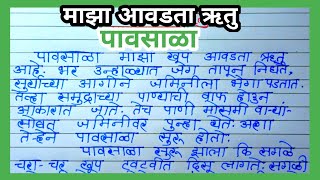 माझा आवडता ऋतु
पावसाळा
पावसाळा माझा खूप आवडता ऋतु
आहे. भर उन्हाळ्यात जग तापून निघते.
सूर्याच्या आगीने जमिनीला भेगा पडतात.
तेव्हा समुद्राच्या पाण्याची वाफ होऊन
आकाशात जाते. तेच पाणी मोसमी वाऱ्यां-
सोबत जमिनीवर पुन्हा येते. अशा
तर्‍हेने पावसाळा सुरू होतो.
पावसाळा सुरू झाला कि सगळे
चरा-चर खूप टवटवीत दिसू लागते. सगळी